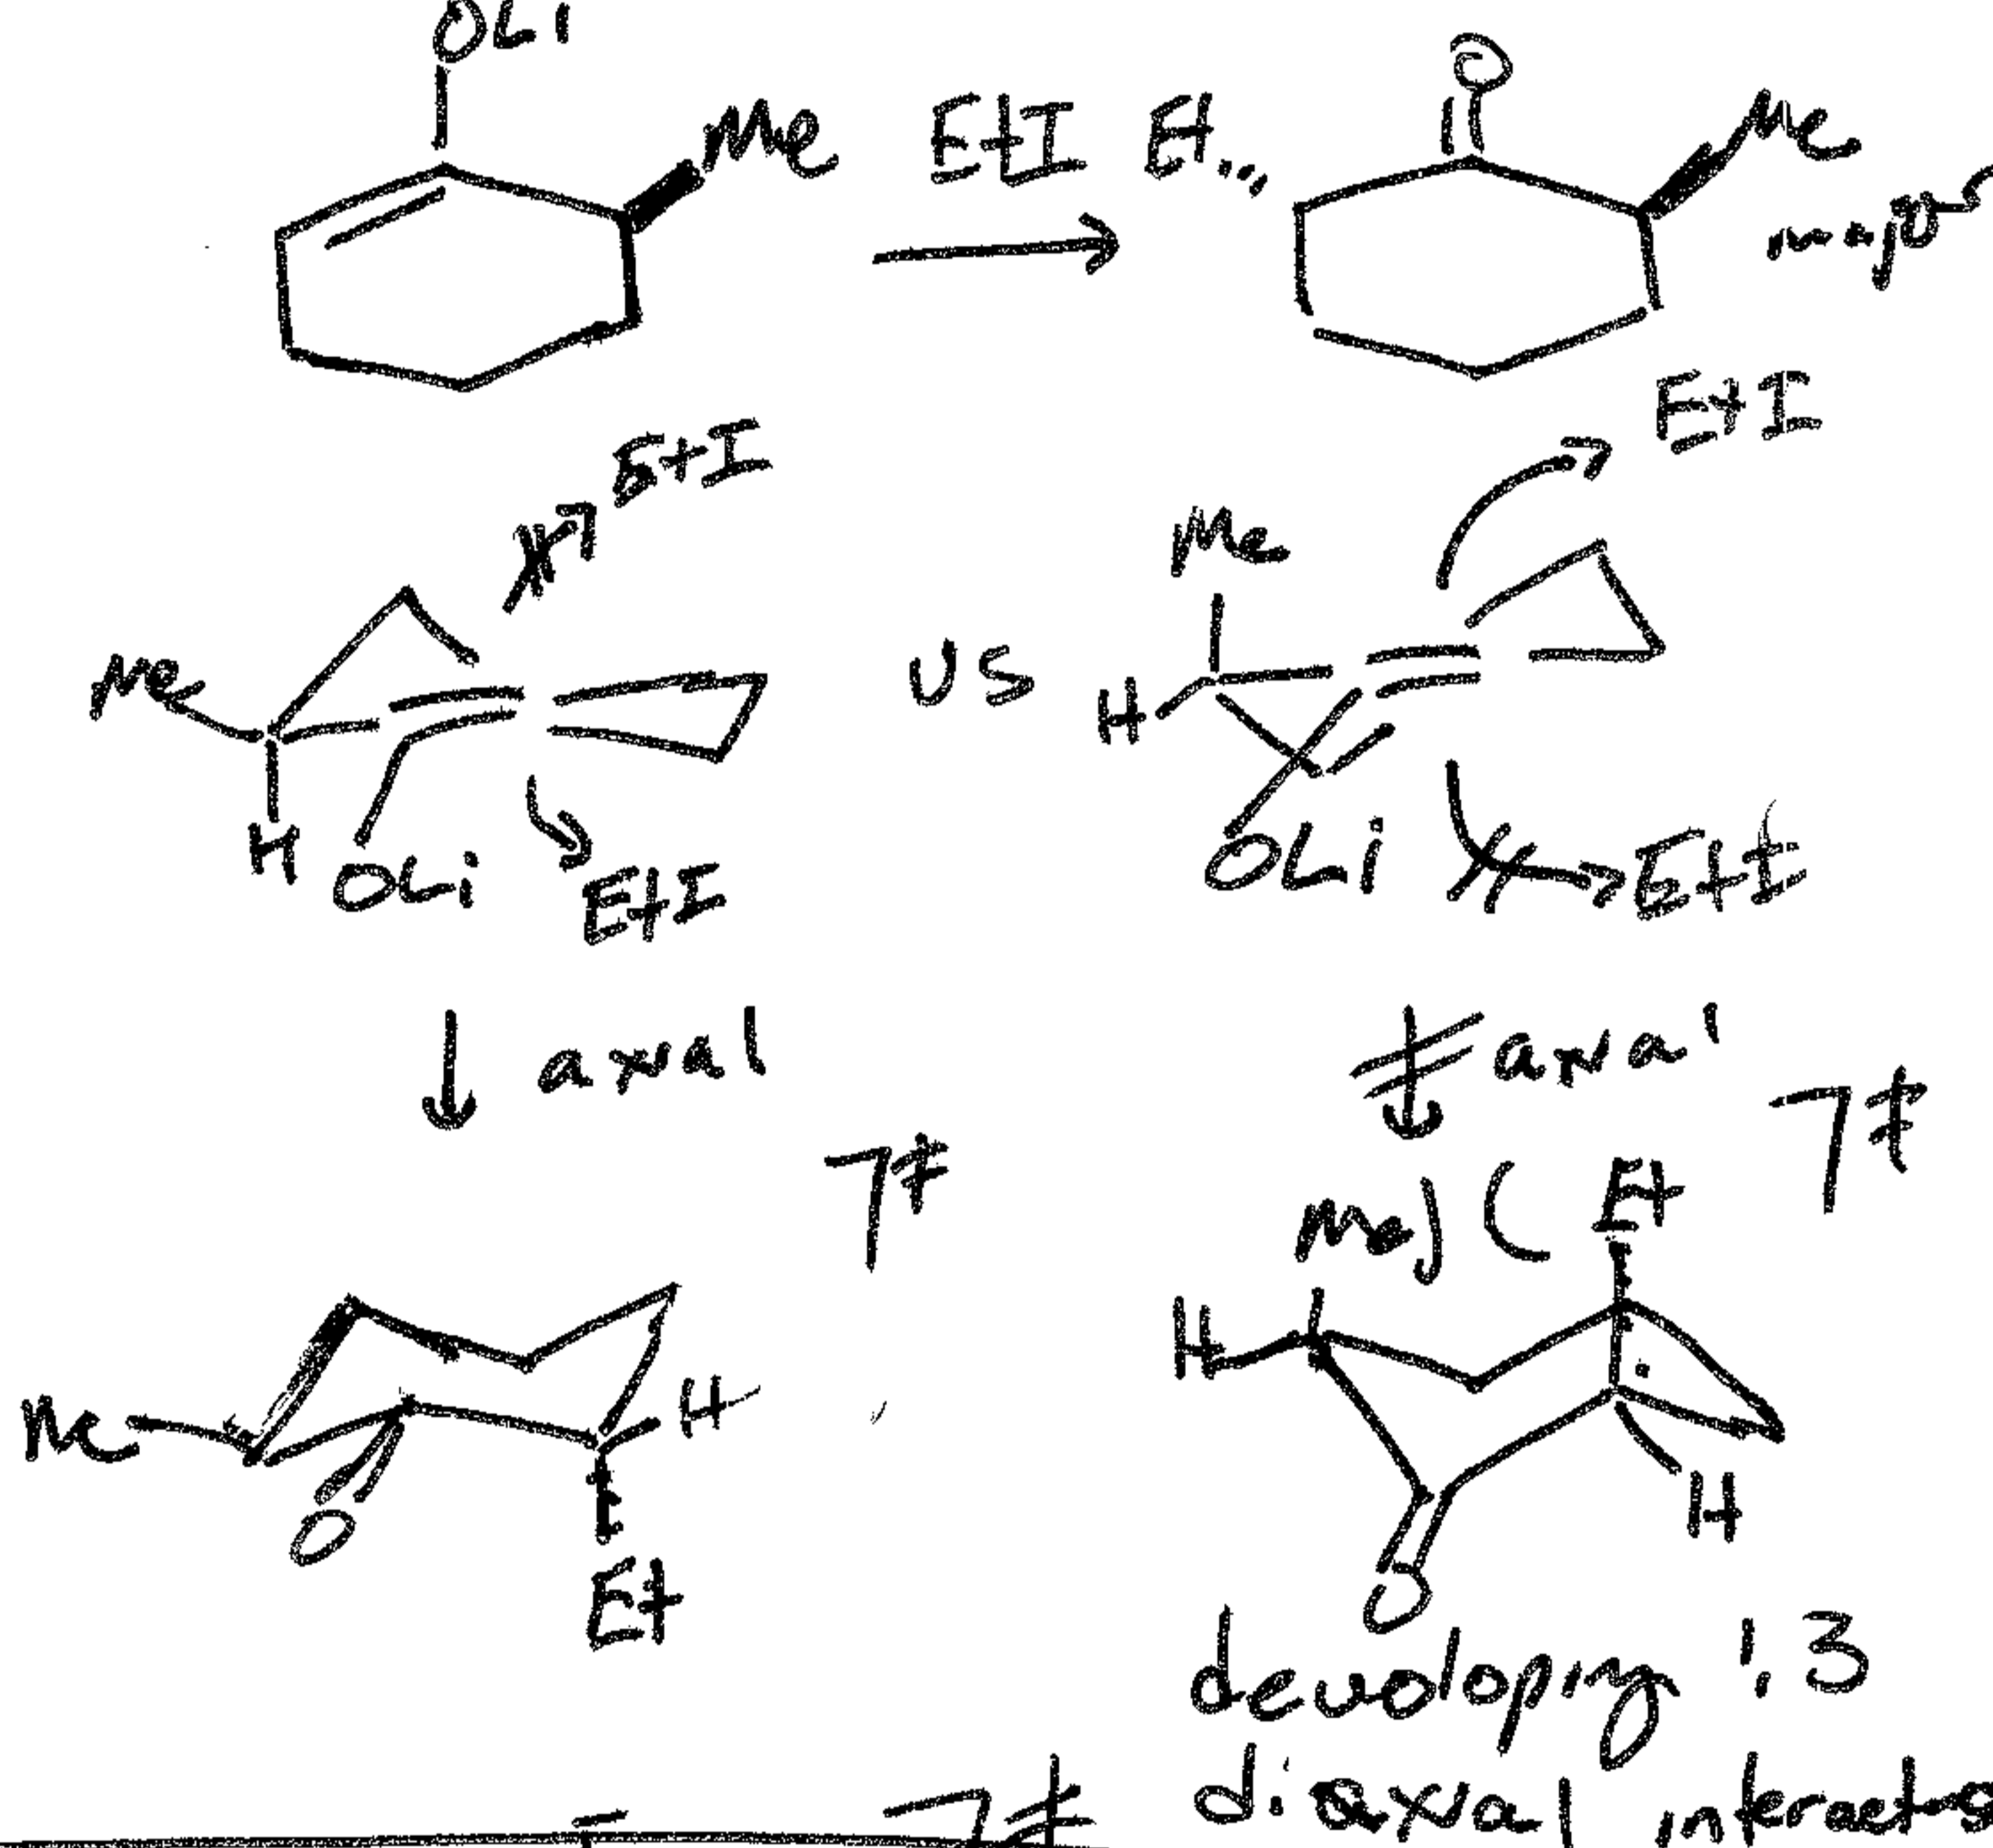 OLi
Me
EtI
Et
O
Me
major
EtI
EtI
Me
Me
H
OLi
EtI
VS
H
OLi
EtI
axial
axial
7‡
7‡
Me
Et
H
Me
H
O
Et
H
O
developing 1,3
diaxial interactns
7‡